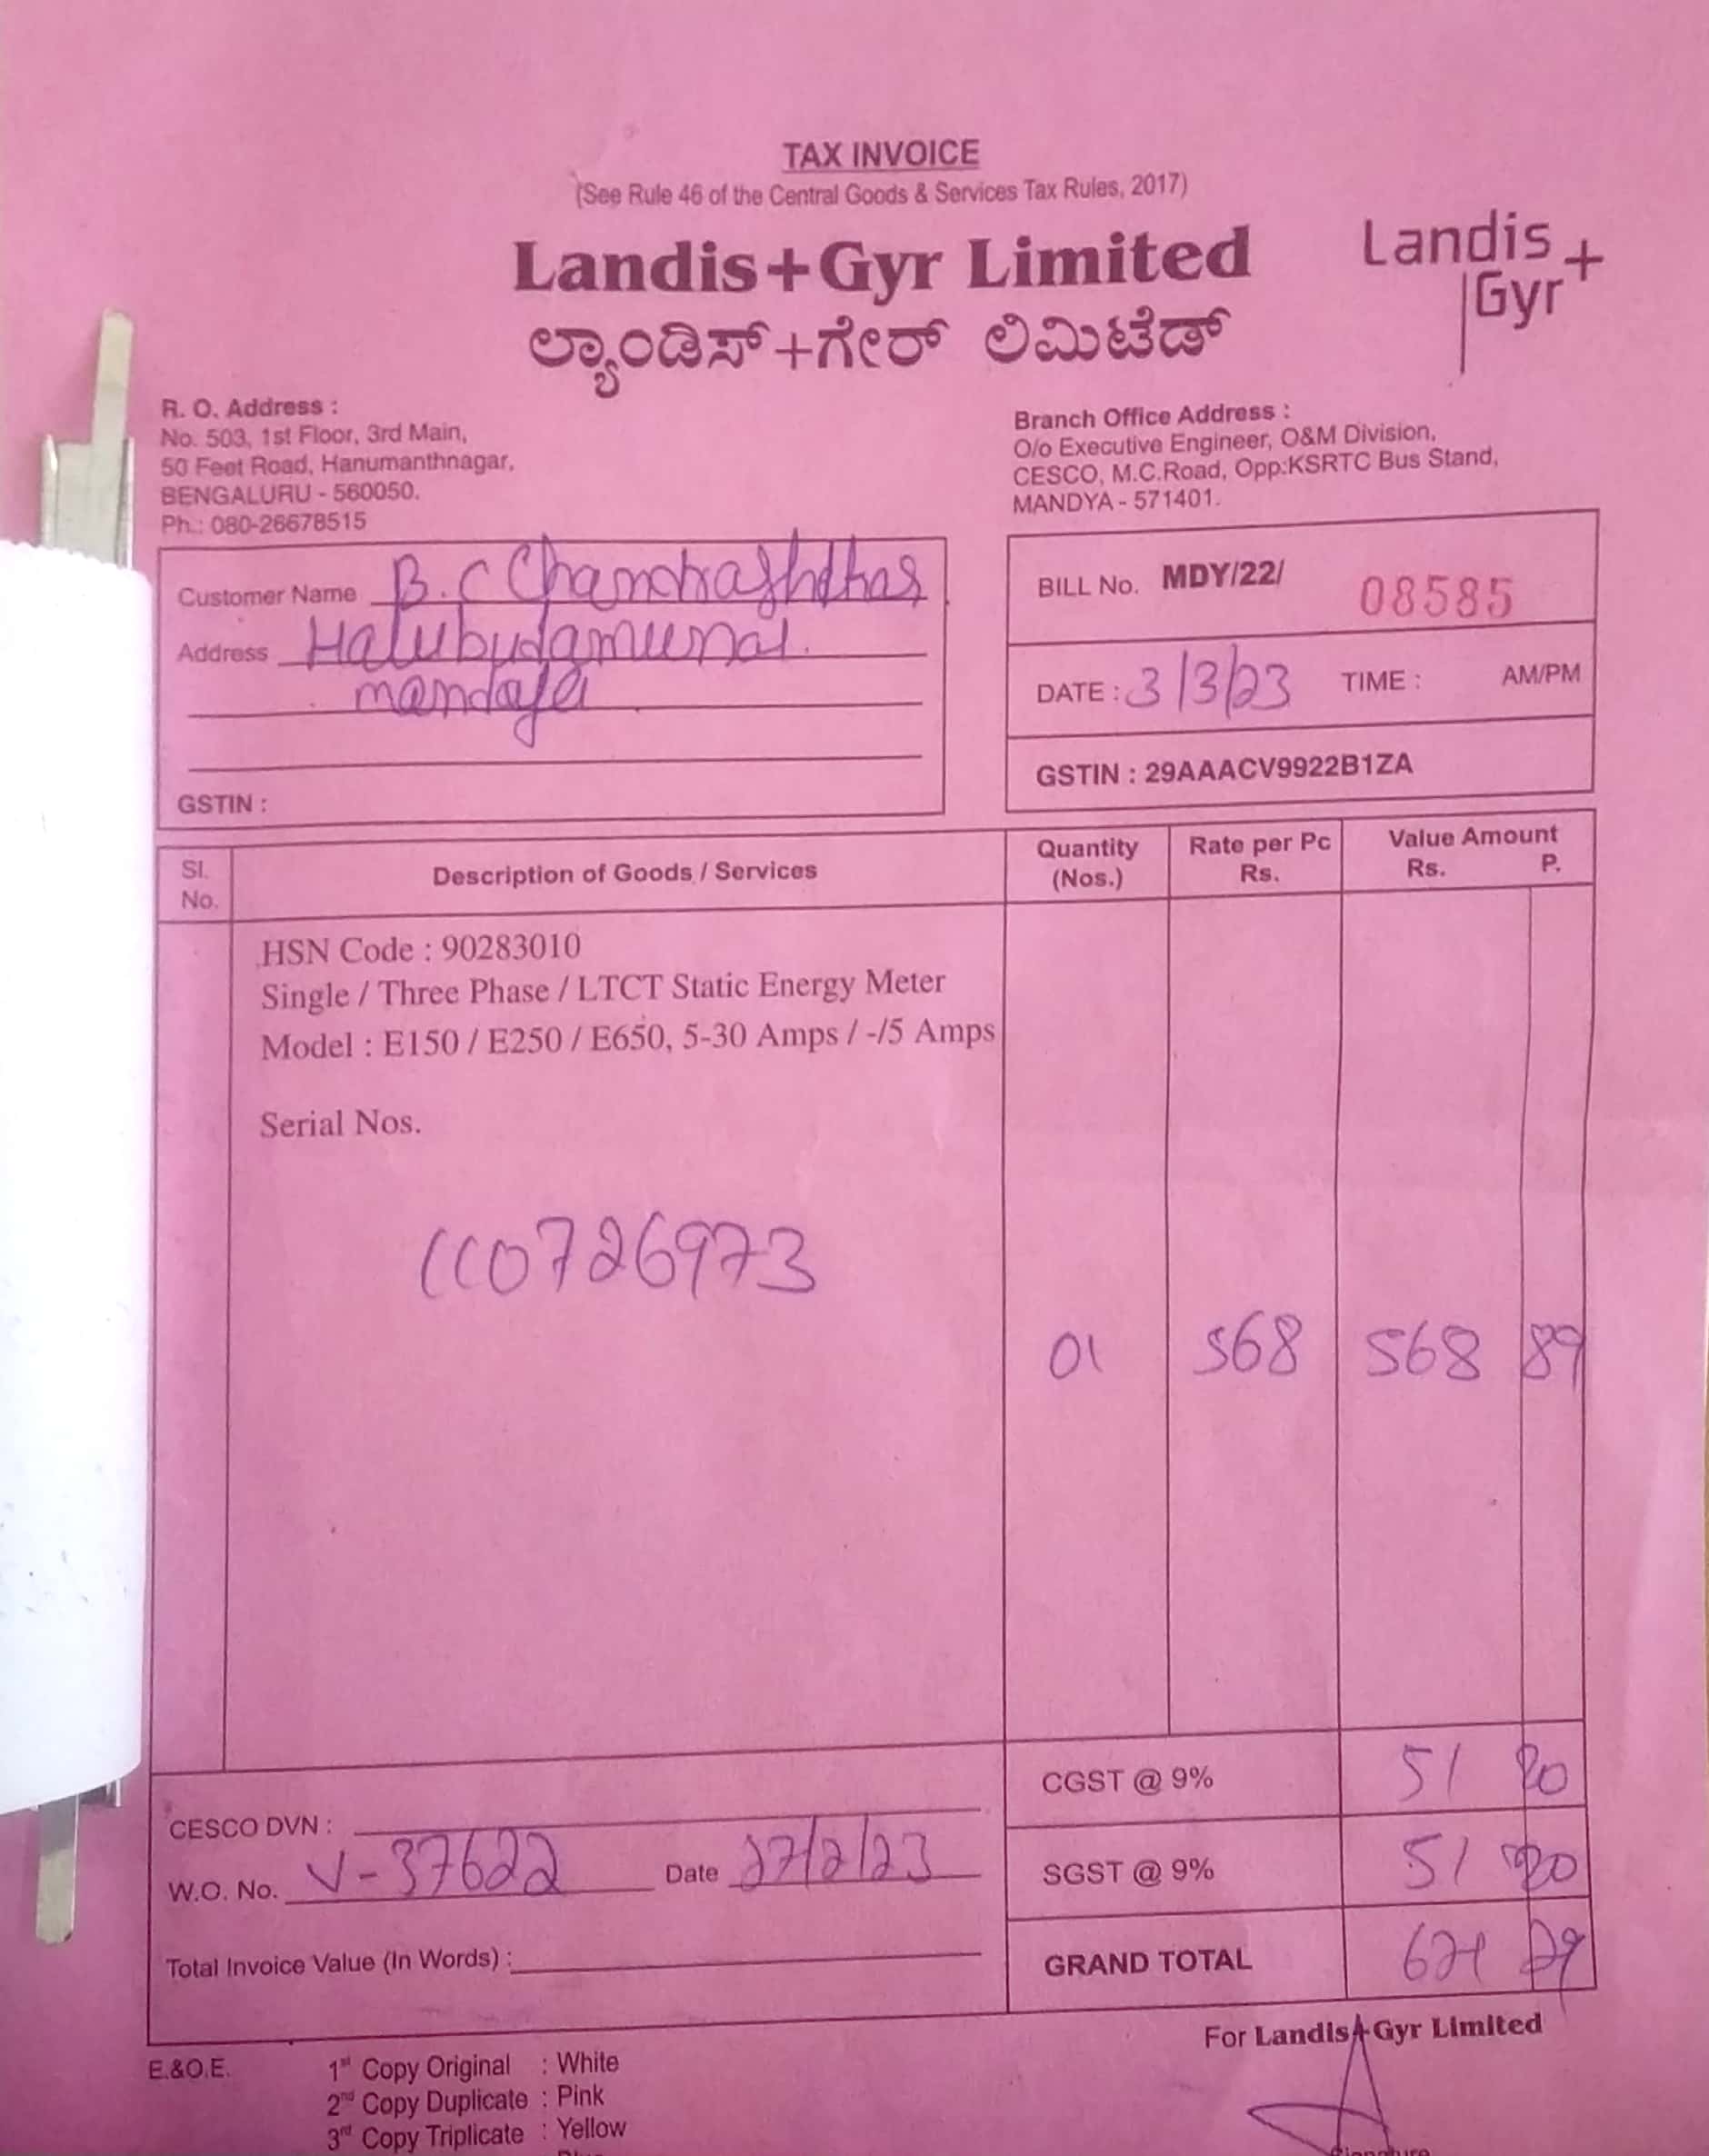 TAX INVOICE
(See Rule 46 of the Central Goods & Services Tax Rules, 2017)
Landis+Gyr Limited
ಲ್ಯಾಂಡಿಸ್+ಗೇರ್ ಲಿಮಿಟೆಡ್
Landis+
Gyr
R. O. Address :
No. 503, 1st Floor, 3rd Main,
50 Feet Road, Hanumanthnagar,
BENGALURU - 560050.
Ph.: 080-26678515
Branch Office Address :
O/o Executive Engineer, O&M Division,
CESCO, M.C.Road, Opp:KSRTC Bus Stand,
MANDYA - 571401.
Customer Name B.C
Address
GSTIN :
BILL No. MDY/22/ 08585
DATE : 3/3/23 TIME : AM/PM
GSTIN : 29AAACV9922B1ZA
Sl. No. Description of Goods / Services Quantity (Nos.) Rate per Pc Rs. Value Amount Rs. P.
HSN Code : 90283010
Single / Three Phase / LTCT Static Energy Meter
Model : E150 / E250 / E650, 5-30 Amps / -/5 Amps
Serial Nos.
CC0726973
01 568 568 89
CGST @ 9% 51 20
SGST @ 9% 51 20
GRAND TOTAL
CESCO DVN :
W.O. No. V-37622 Date 27/2/23
Total Invoice Value (In Words) :
For Landis+Gyr Limited
E.&O.E.
1st Copy Original : White
2nd Copy Duplicate : Pink
3rd Copy Triplicate : Yellow